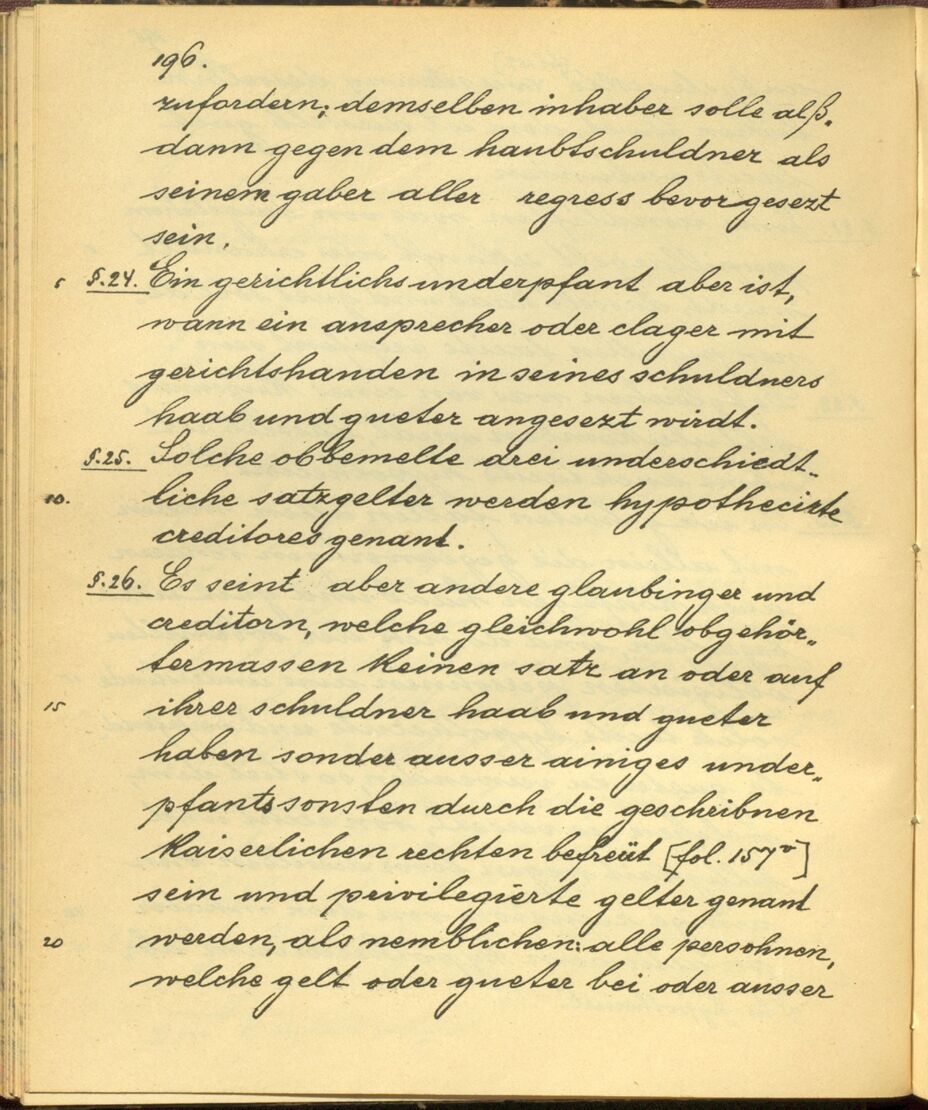 196.
zufordern; demselben inhaber solle alß„
dann gegen dem haubtschuldner als
seinem gaber aller regress bevorgesezt
sein.
5 §.24. Ein gerichtlichs underpfant aber ist,
wann ein ansprecher oder clager mit
gerichtshanden in seines schuldners
haab und gueter angesezt wirdt.
§.25. Solche obbemelte drei underschiedt„
10. liche satzgelter werden hypothecirte
creditores genant.
§.26. Es seint aber andere glaubinger und
creditorn, welche gleichwohl obgehör„
termassen keinen satz an oder auf
15 ihrer schuldner haab und gueter
haben sonder ausser ainiges under„
pfants sonsten durch die geschribnen
kaiserlichen rechten befreüt [fol. 157v]
sein und privilegierte gelter genant
20 werden, als nemblichen: alle persohnen,
welche gelt oder gueter bei oder ausser